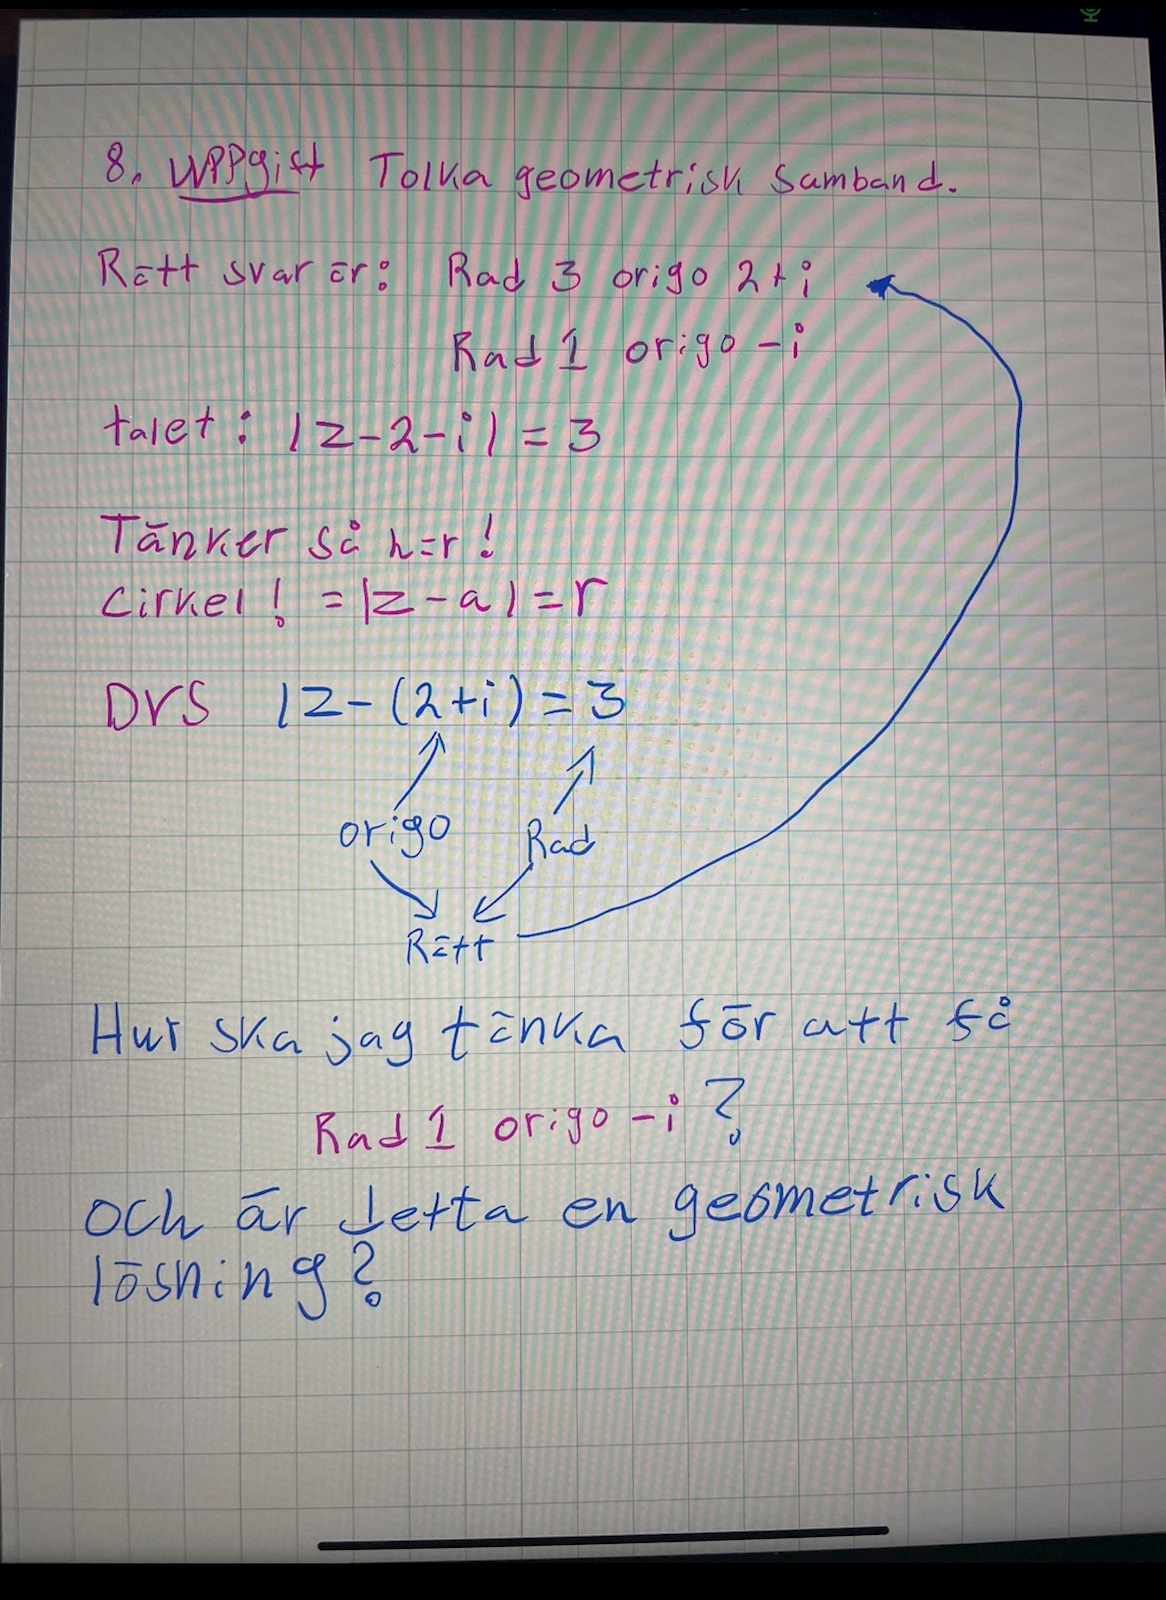 8. UPPgift Tolka geometrisk Samband.
Rätt svar är: Rad 3 origo 2+i
Rad 1 origo -i
talet: |z-2-i| = 3
Tänker så h=r!
Cirkel! = |z-a| = r
DVS |z-(2+i) = 3
origo Rad
Rätt
Hur ska jag tänka för att få
Rad 1 origo -i ?
och är detta en geometrisk
lösning?